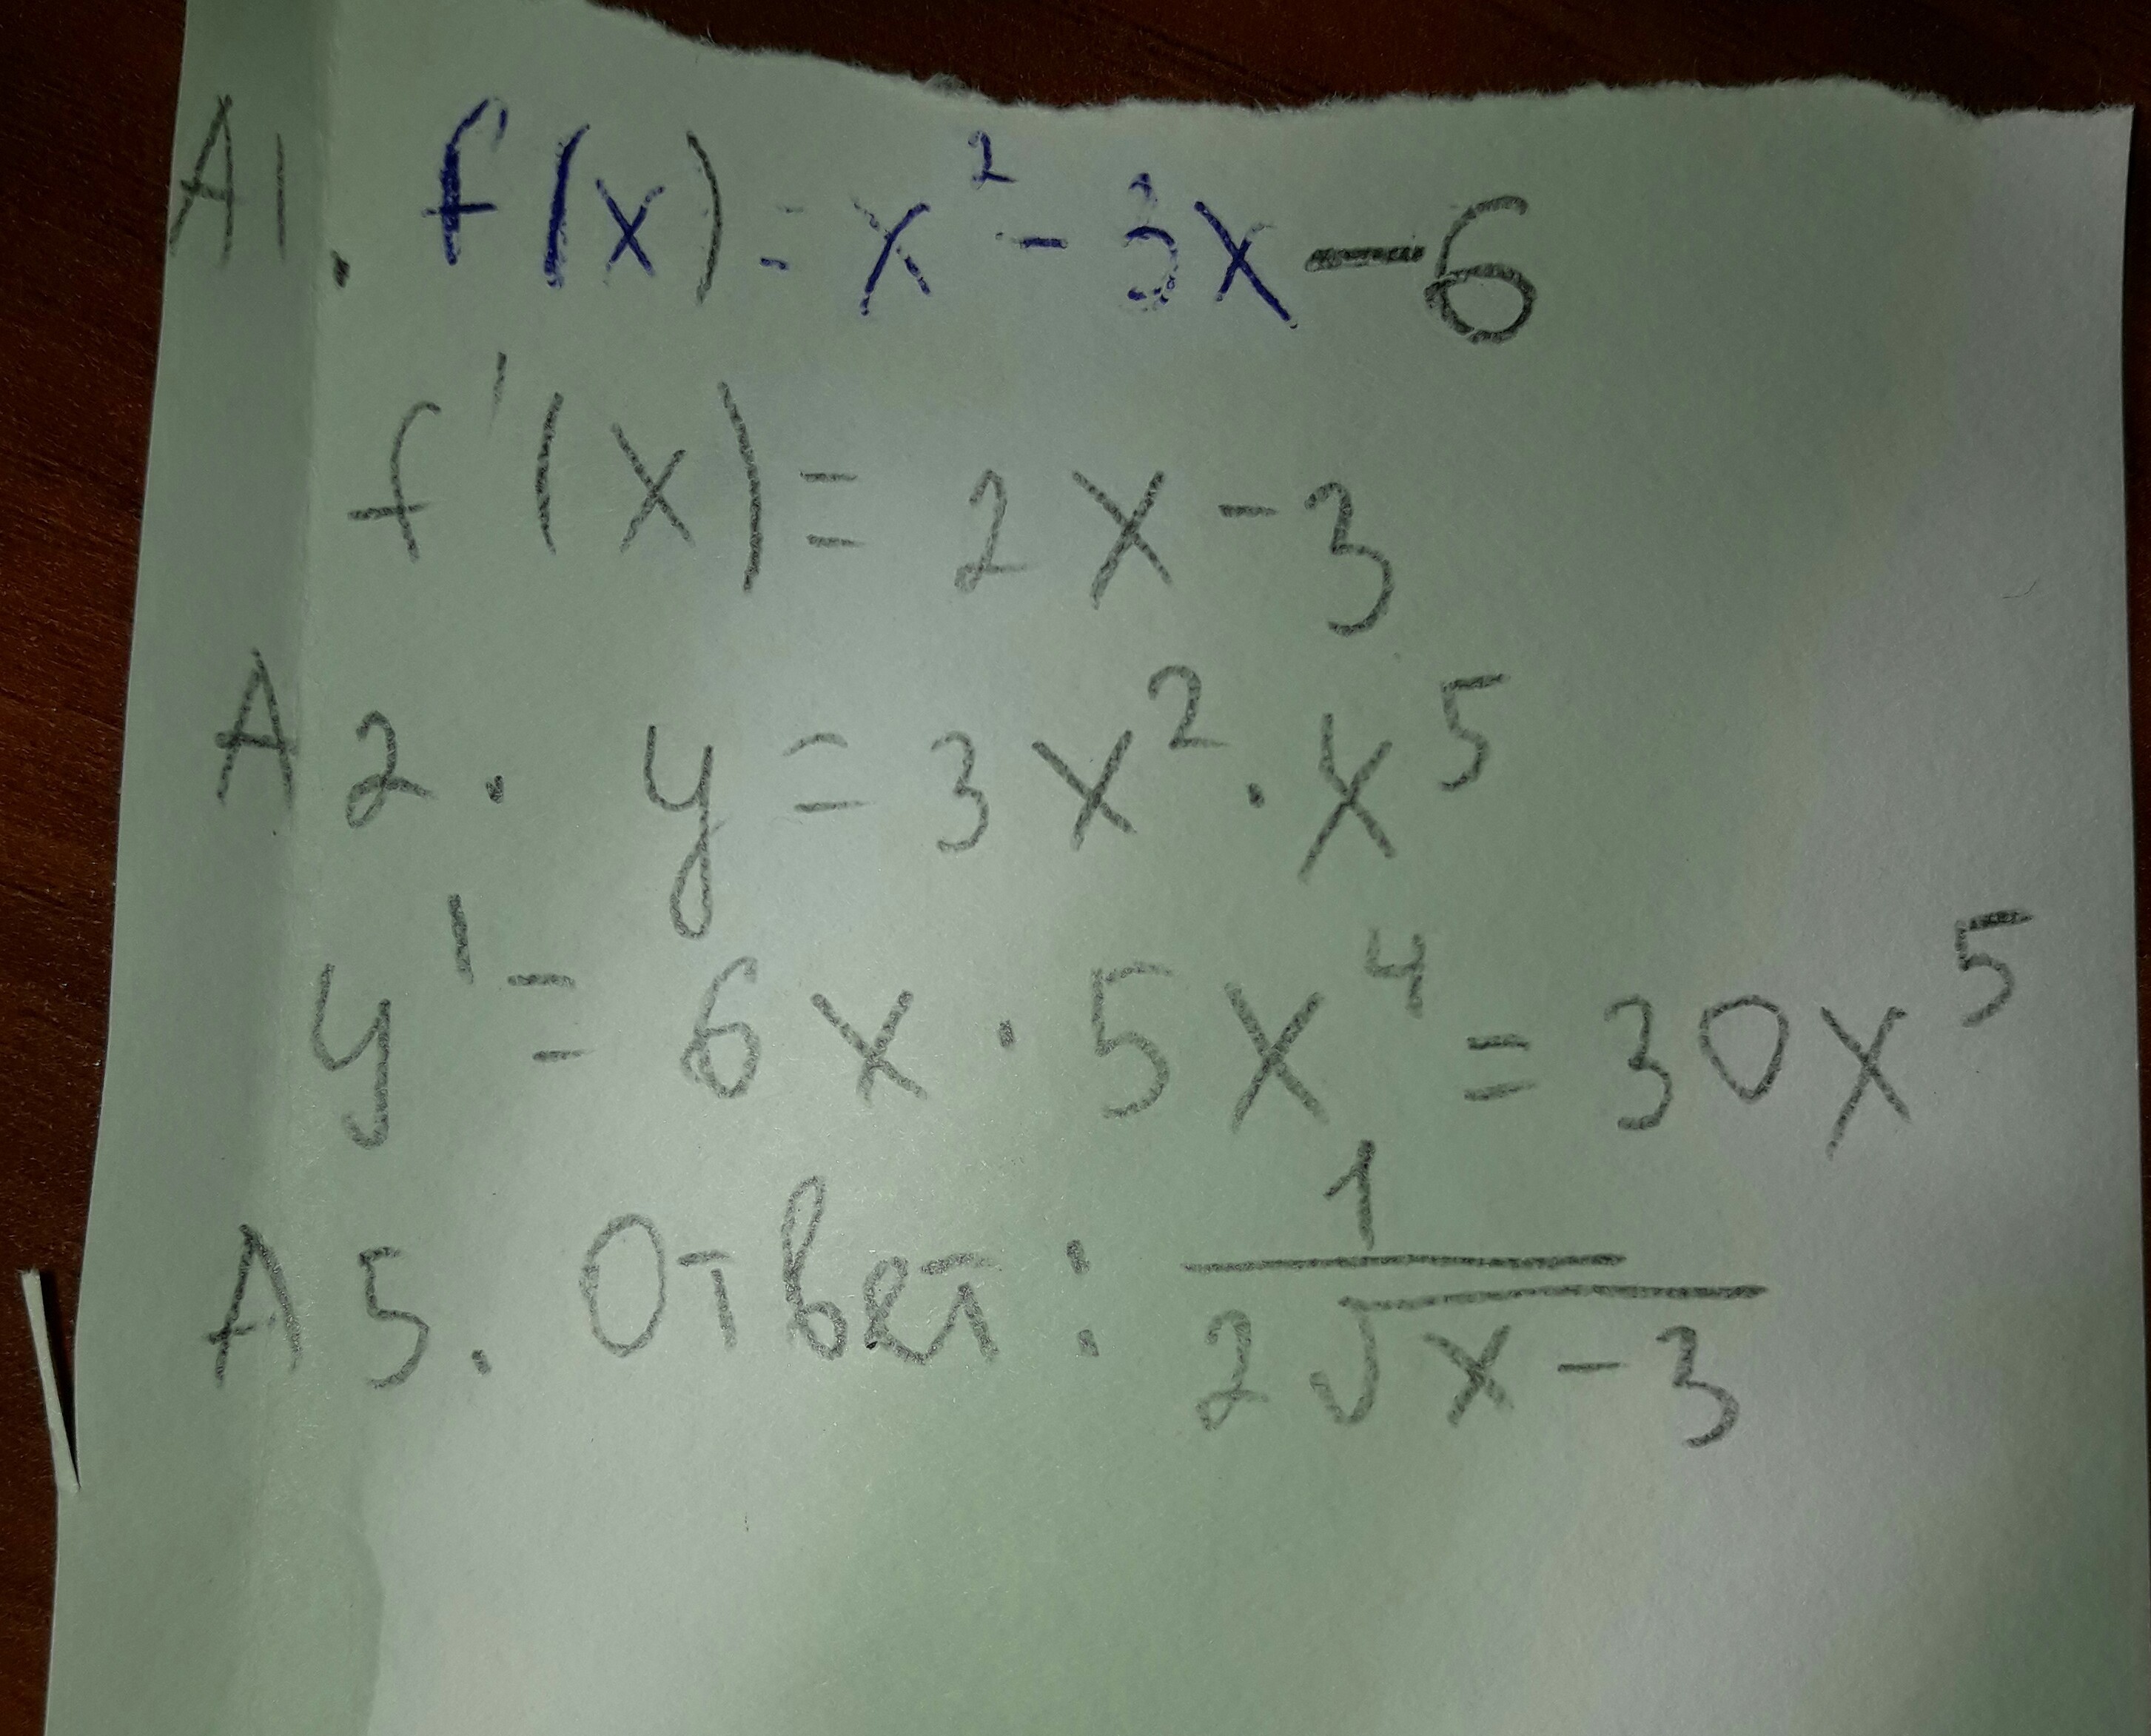 A1. f(x) = x² - 3x - 6
f'(x) = 2x - 3
A2. y = 3x² · x⁵
y' = 6x · 5x⁴ = 30x⁵
A5. Ответ: 1/(2√(x - 3))